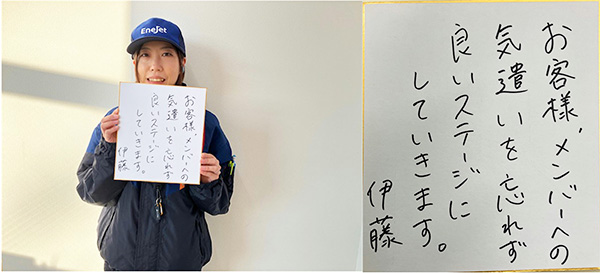 Enejet
お客様、メンバーへの
気遣いを忘れず
良いステージに
していきます。
伊藤
お客様、メンバーへの
気遣いを忘れず
良いステージに
していきます。
伊藤